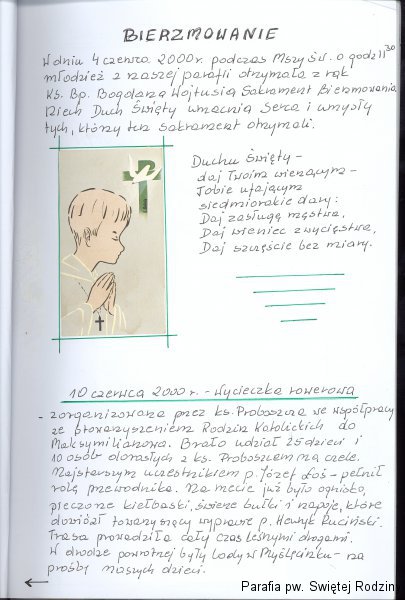 BIERZMOWANIE
W dniu 4 czerwca 2000 r. podczas Mszy Św. o godz 11³⁰
młodzież z naszej parafii otrzymała z rąk
Ks. Bp. Bogdana Wojtusia Sakrament Bierzmowania
Niech Duch Święty umacnia serca i umysły
tych, którzy ten sakrament otrzymali.
Duchu Święty –
daj Twoim wierzącym –
Tobie ufającym
siedmiorakie dary:
Daj zasługę męstwa,
Daj wieniec zwycięstwa,
Daj szczęście bez miary.
10 czerwca 2000 r. - Wycieczka rowerowa
- zorganizowana przez ks. Proboszcza we współpracy
ze Stowarzyszeniem Rodzin Katolickich do
Maksymilianowa. Brało udział 25 dzieci i
10 osób dorosłych z ks. Proboszczem na czele.
Najstarszym uczestnikiem p. Józef Łoś - pełnił
rolę przewodnika. Na mecie już było ognisko,
pieczone kiełbaski, świeże bułki i napoje, które
dowiózł towarzyszący wyprawie p. Henryk Ruciński.
Trasa prowadziła cały czas leśnymi drogami.
W drodze powrotnej były lody w Myślęcinku - na
prośby naszych dzieci.
Parafia pw. Swiętej Rodzin